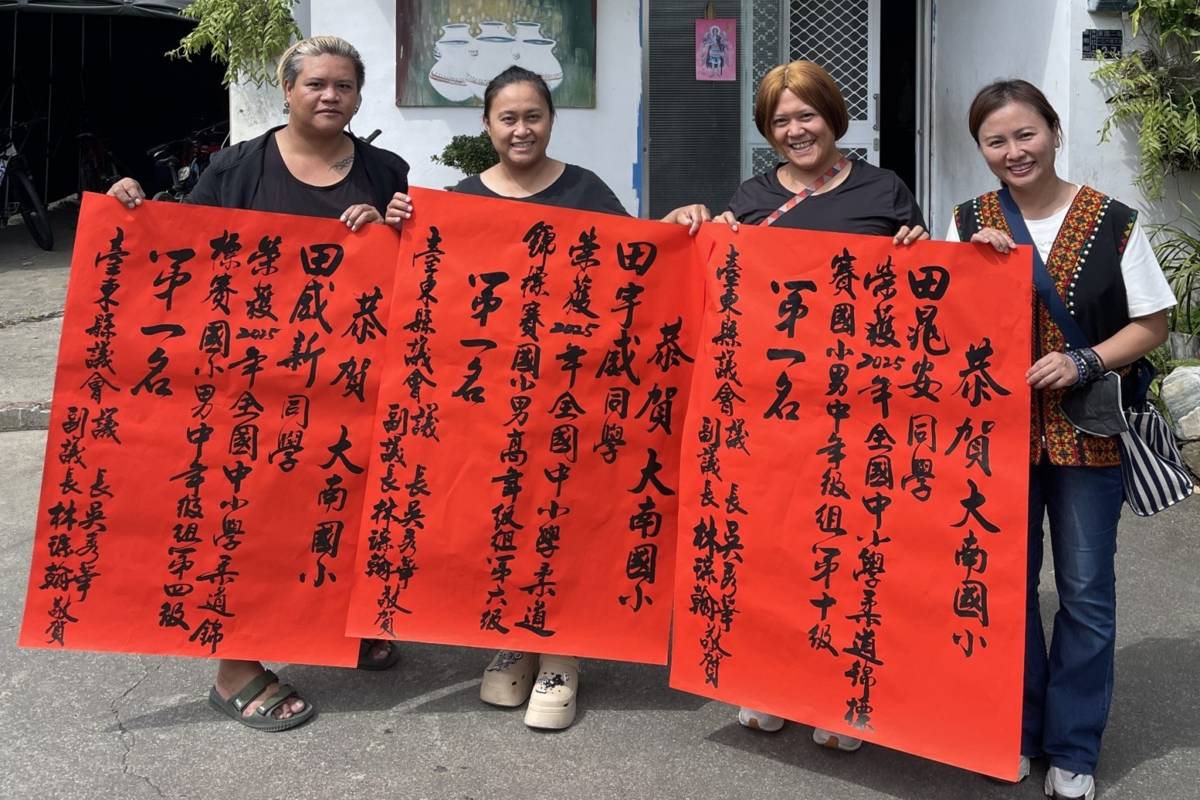 恭賀 大南國小
田威新 同學
榮獲2025年全國中小學柔道錦
標賽國小男中年級組第四級
第一名
臺東縣議會 議長吳秀華
副議長林琮翰 敬賀
恭賀大南國小
田宇威同學
榮獲2025年全國中小學柔道
錦標賽國小男高年級組第六級
第一名
臺東縣議會 議長吳秀華
副議長林琮翰 敬賀
恭賀大南國小
田晁安同學
榮獲2025年全國中小學柔道錦標
賽國小男中年級組第十級
第一名
臺東縣議會 議長吳秀華
副議長林琮翰 敬賀